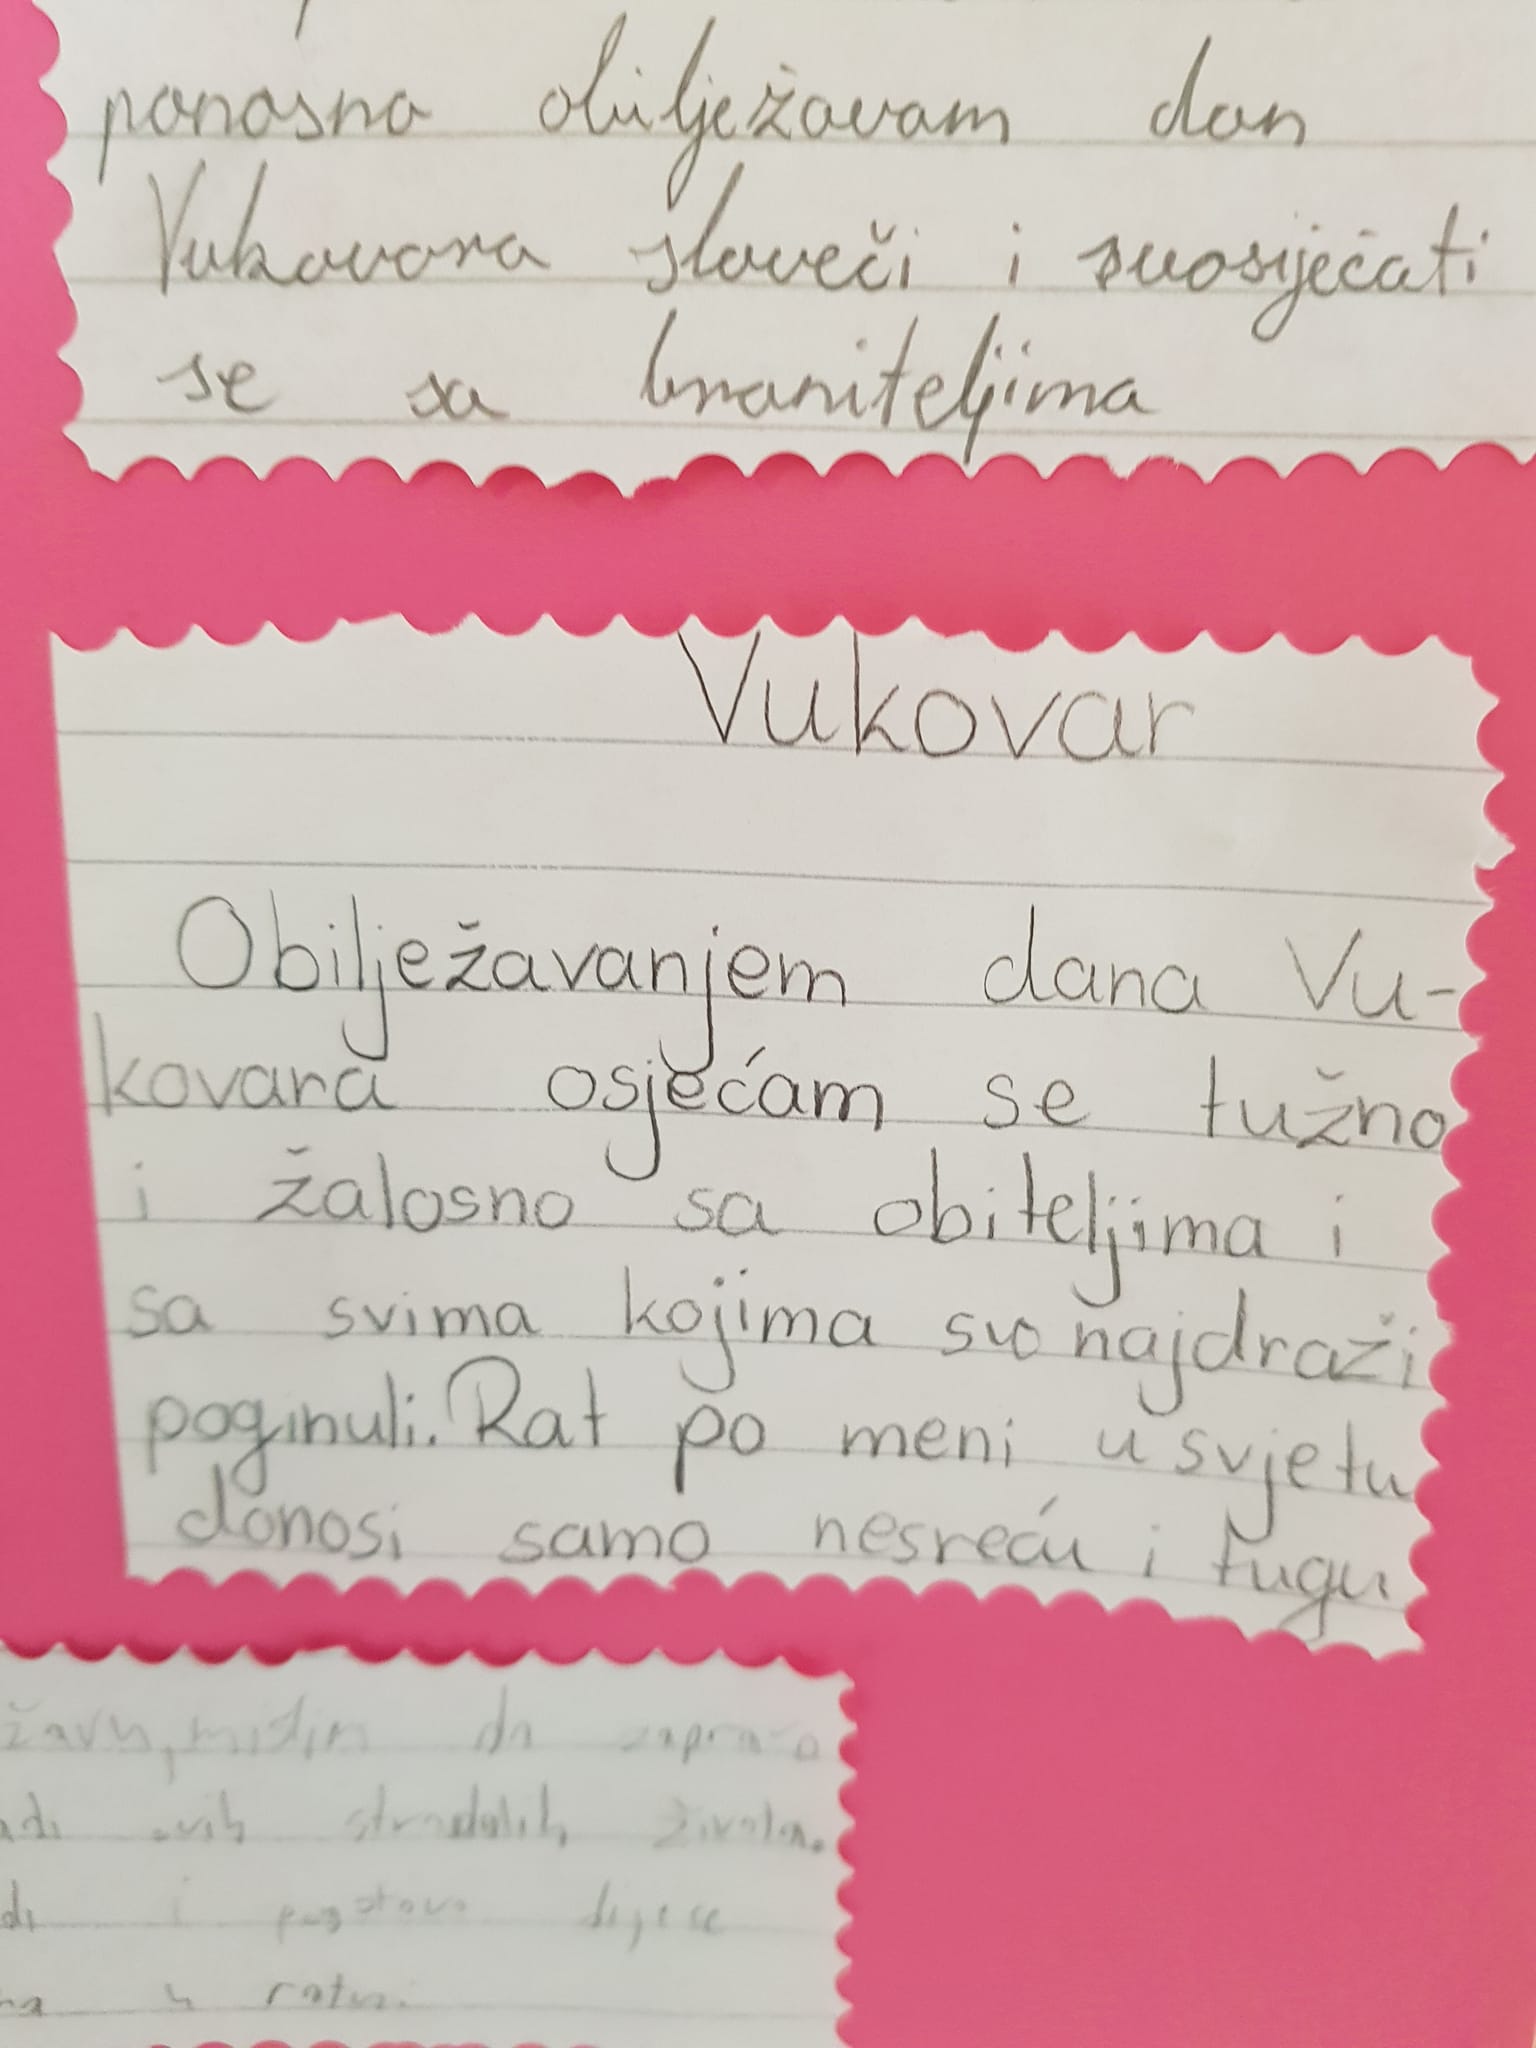 ponosno obilježavam dan
Vukovara slaveči i suosijećati
se sa braniteljima
Vukovar
Obilježavanjem dana Vu-
kovara osjećam se tužno
i žalosno sa obiteljima i
sa svima kojima svo najdraži
poginuli. Rat po meni u svjetu
donosi samo nesreću i tugu
mislim da
ovih stradalih života.
i
u ratu.